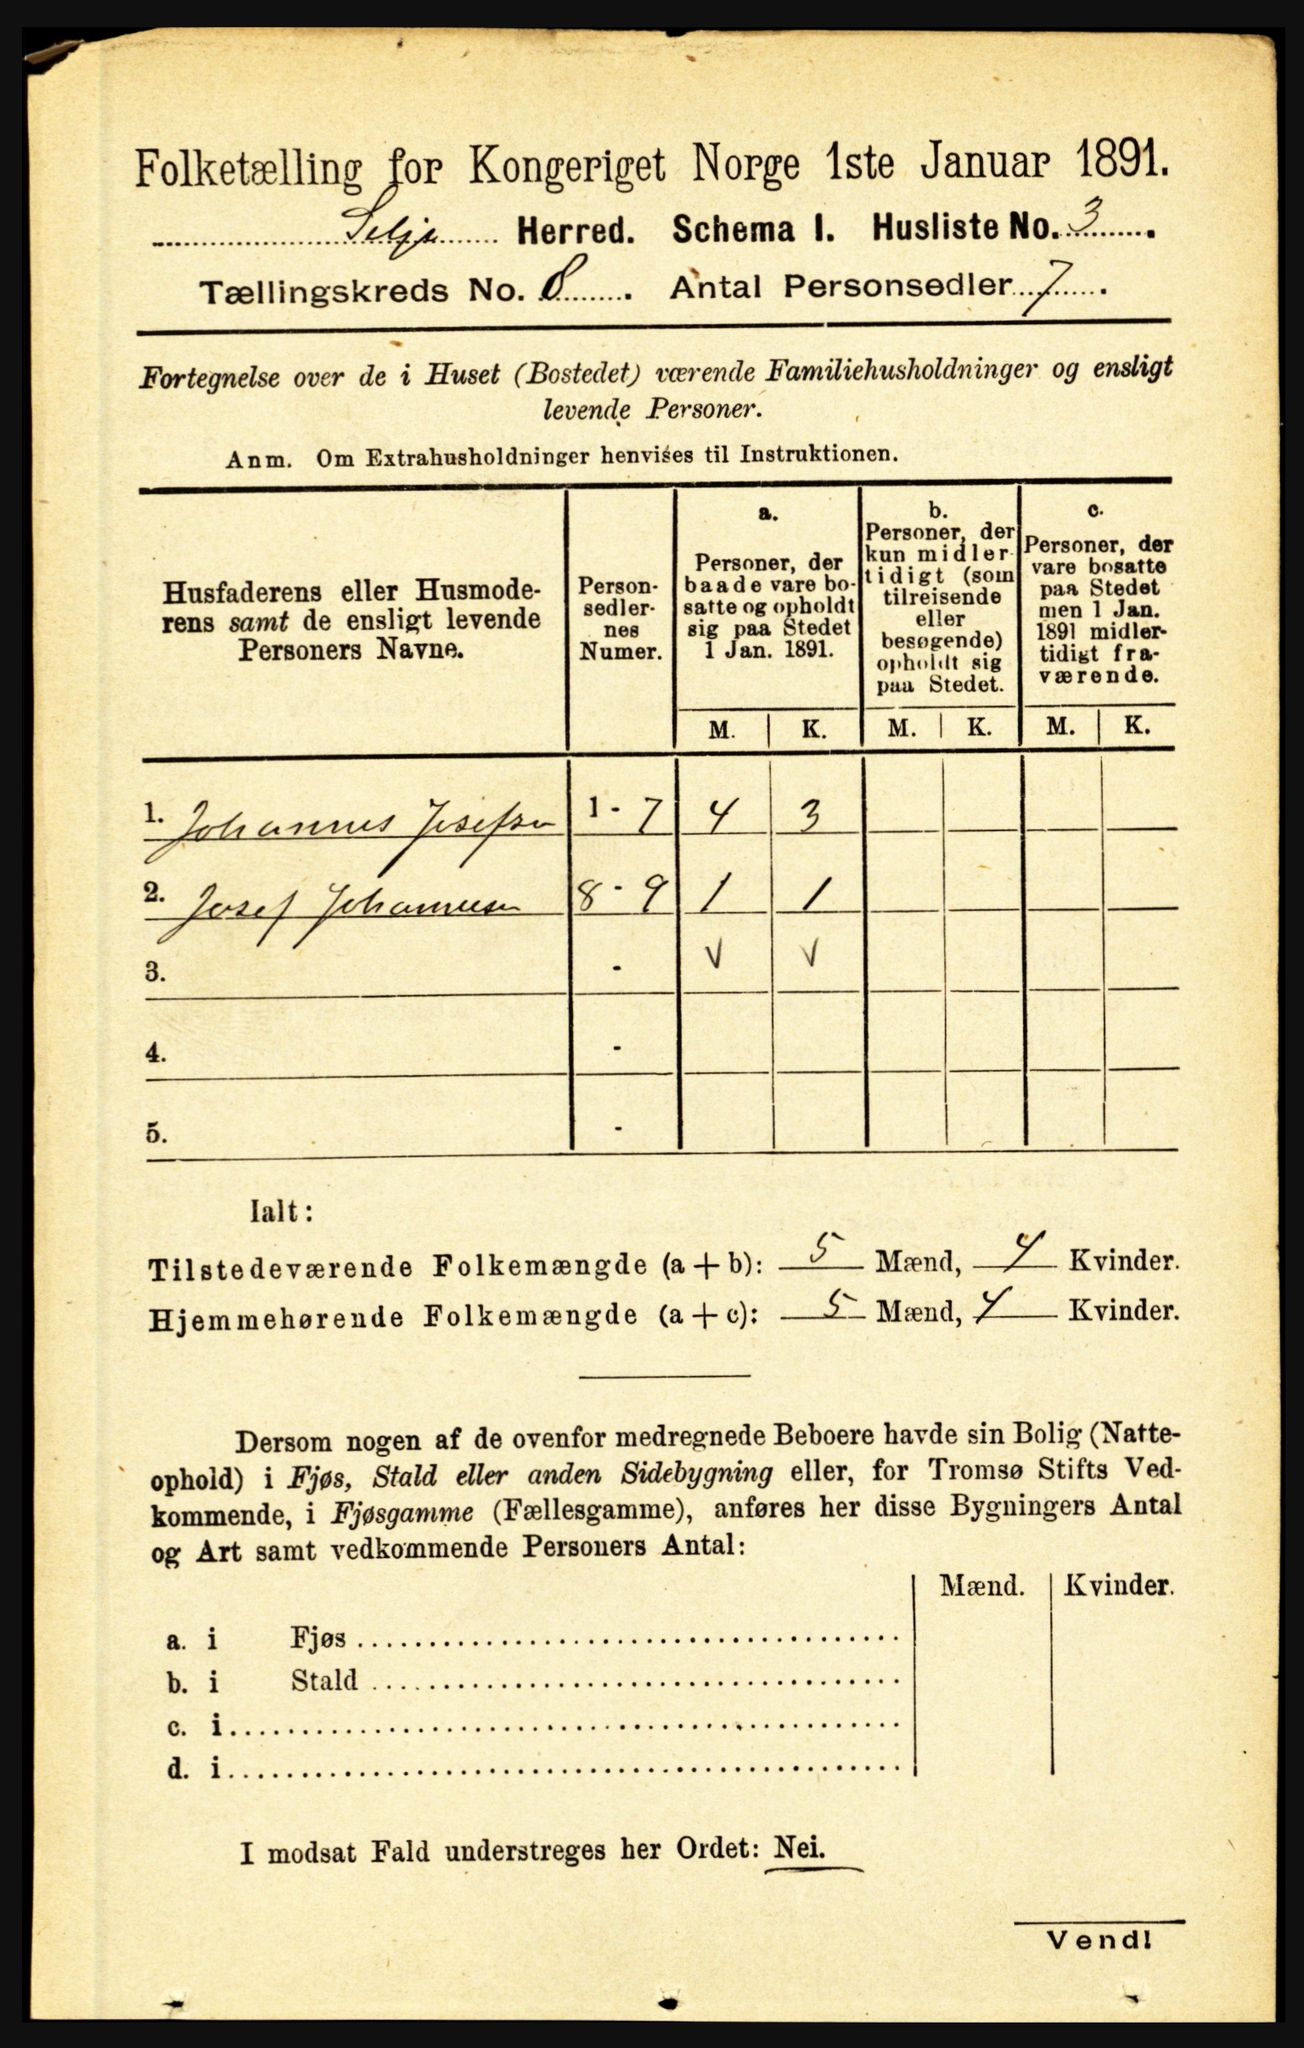 Folketælling for Kongeriget Norge 1ste Januar 1891.
Selje Herred. Schema I. Husliste No. 3.
Tællingskreds No. 8. Antal Personsedler 7.
Fortegnelse over de i Huset (Bostedet) værende Familiehusholdninger og ensligt
levende Personer.
Anm. Om Extrahusholdninger henvises til Instruktionen.
Husfaderens eller Husmode-
rens samt de ensligt levende
Personers Navne.
Person-
sedler-
nes
Numer.
a.
Personer, der
baade vare bo-
satte og opholdt
sig paa Stedet
1 Jan. 1891.
b.
Personer, der
kun midler-
tidigt (som
tilreisende
eller
besøgende)
opholdt sig
paa Stedet.
c.
Personer, der
vare bosatte
paa Stedet
men 1 Jan.
1891 midler-
tidigt fra-
værende.
M. K. M. K. M. K.
1. Johannes Josefsen 1 - 7 4 3
2. Josef Johannesen 8 - 9 1 1
3. - v v
4. -
5. -
Ialt:
Tilstedeværende Folkemængde (a + b): 5 Mænd, 4 Kvinder.
Hjemmehørende Folkemængde (a + c): 5 Mænd, 4 Kvinder.
Dersom nogen af de ovenfor medregnede Beboere havde sin Bolig (Natte-
ophold) i Fjøs, Stald eller anden Sidebygning eller, for Tromsø Stifts Ved-
kommende, i Fjøsgamme (Fællesgamme), anføres her disse Bygningers Antal
og Art samt vedkommende Personers Antal:
Mænd. Kvinder.
a. i Fjøs
b. i Stald
c. i
d. i
I modsat Fald understreges her Ordet: Nei.
Vend!